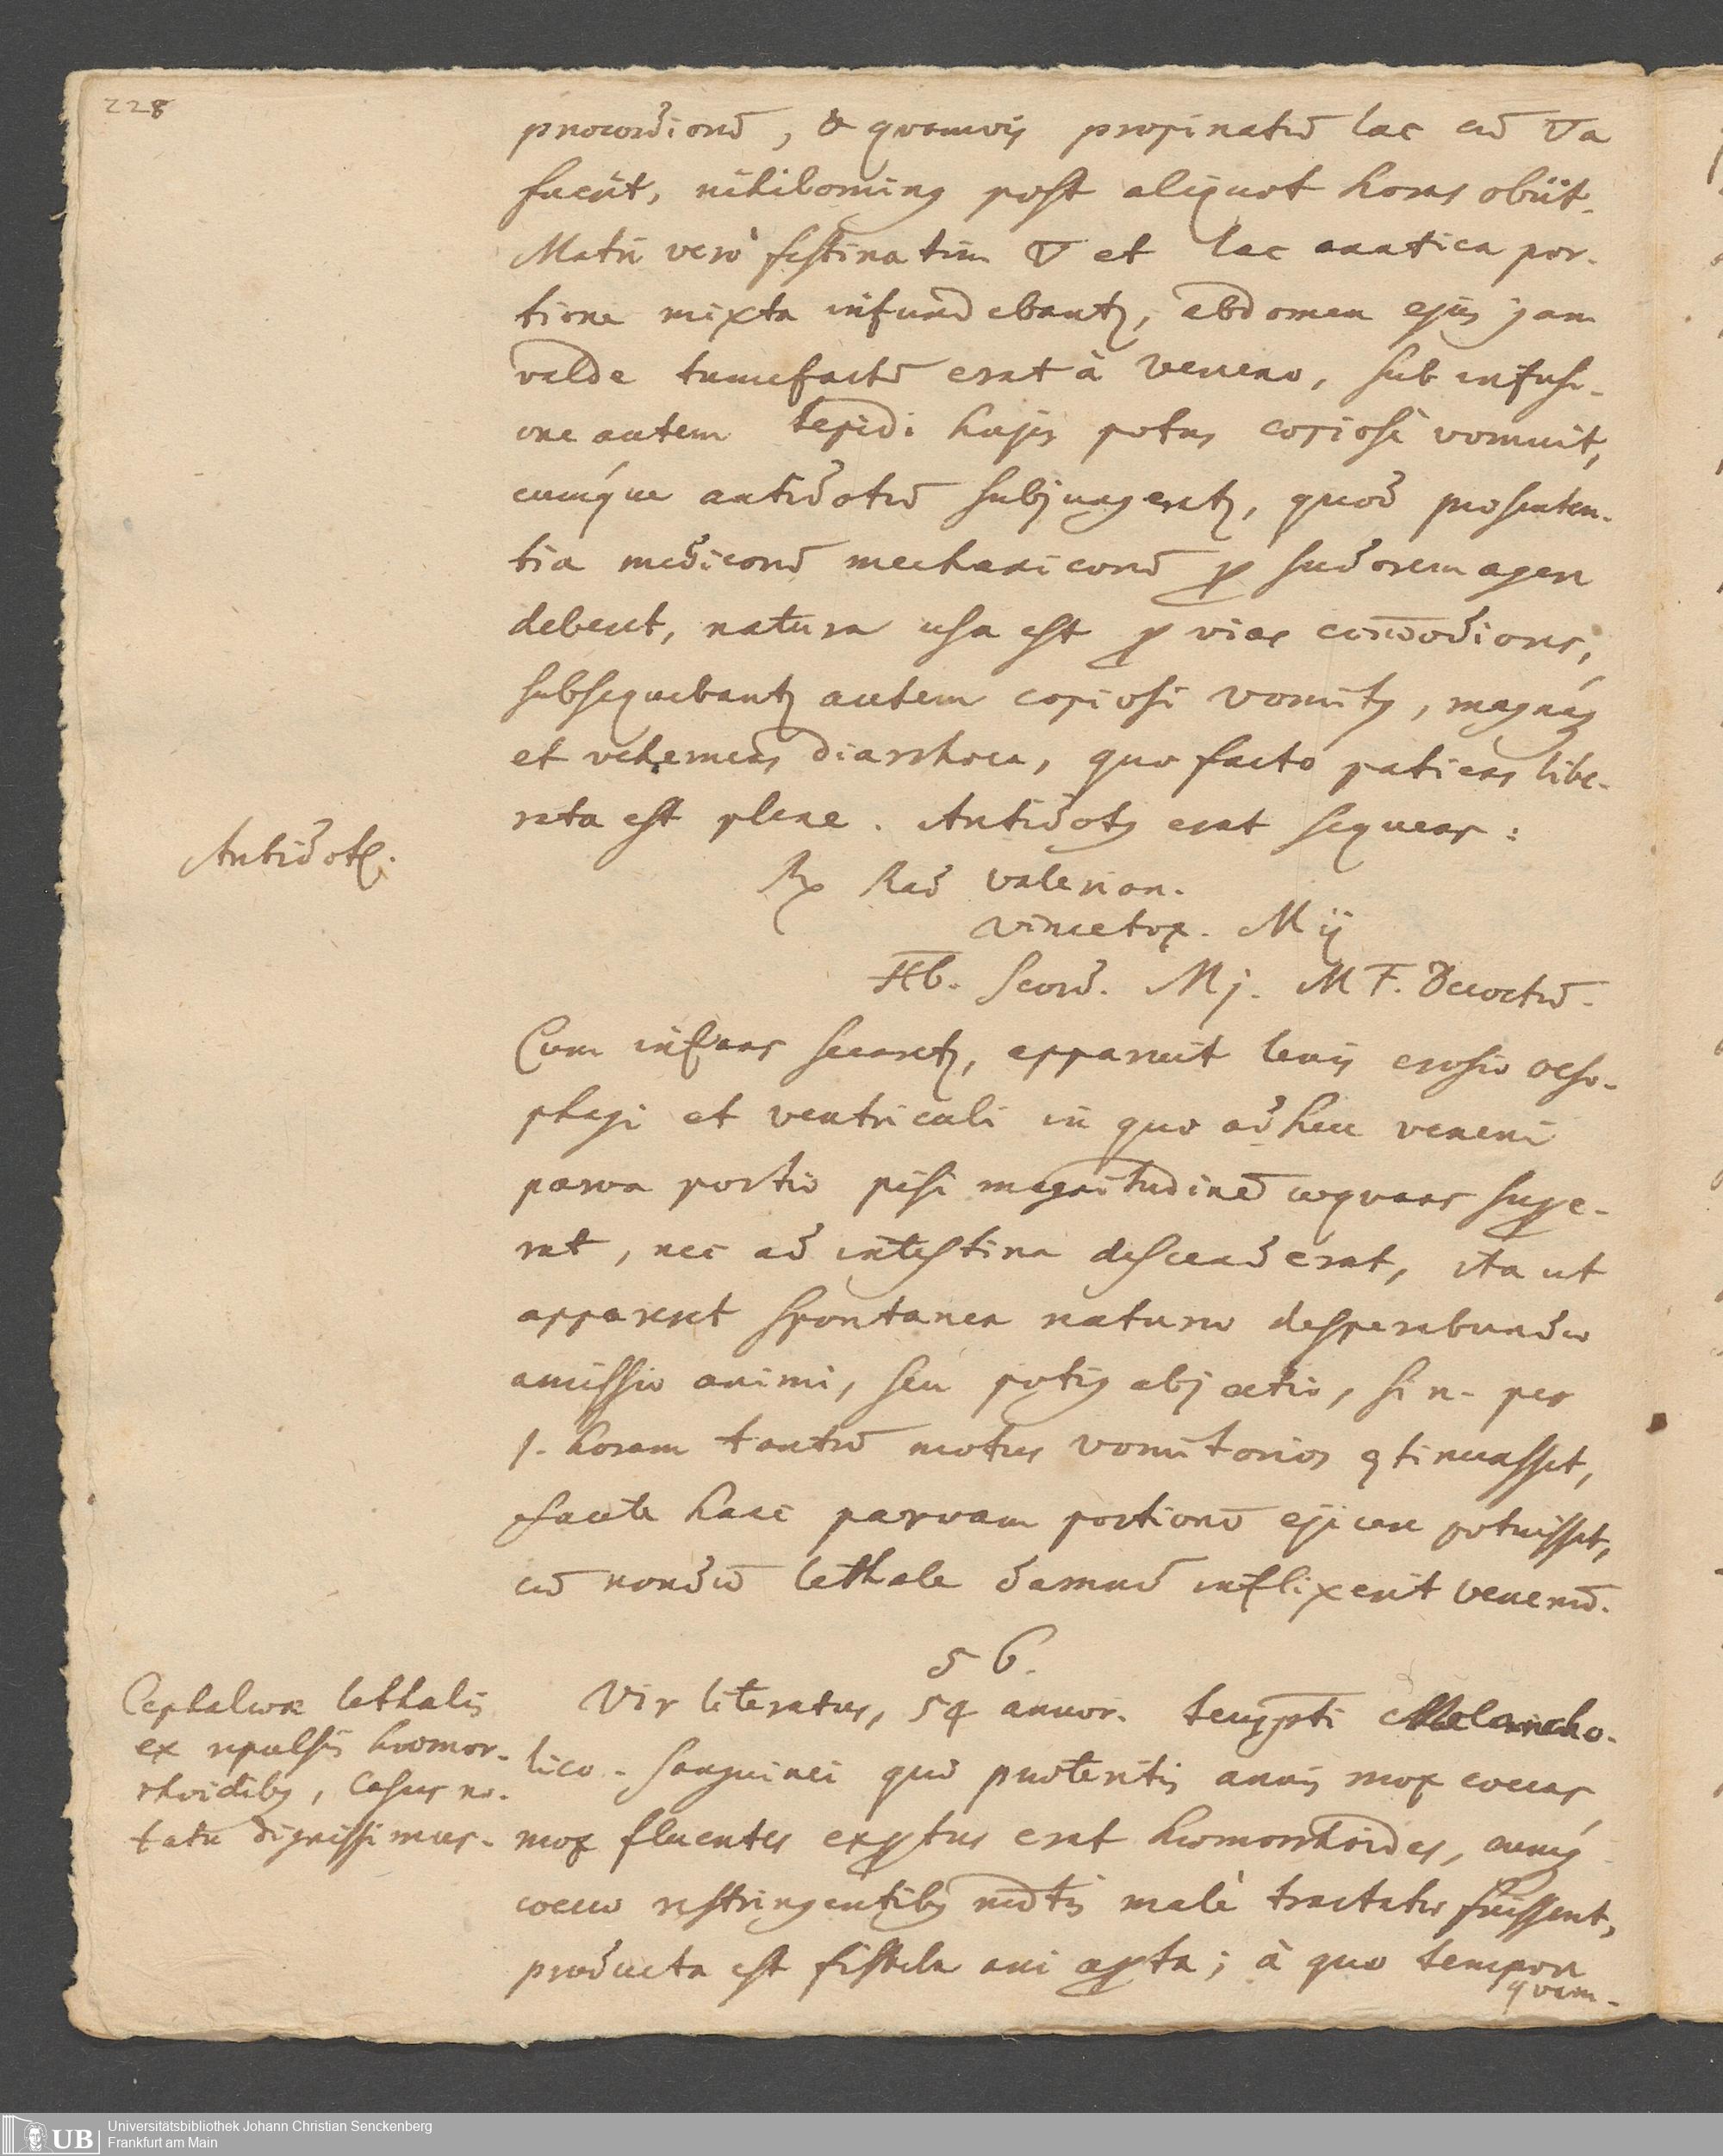 228
præcordiorū, & qvamvis propinatū lac cū ▽a
fuerit, nihilominꝰ post aliquot horas obiit.
Matri verò festinatim ▽ et lac anatica por-
tione mixta infundebantꝛ, abdomen ejus jam
valde tumefactū erat à veneno, sub infusi-
one autem tepidi hujus potus copiosè vomuit,
cumq́ue antidotū subjungeretꝛ, quod ... senten-
tia medicorū mechanicorū ꝑ sudorem agere
debent, natura usa est ꝑ vias com̄odiores,
subsequebantꝛ autem copiosi vomitꝰ, magnaq́ꝫ
et vehemens diarrhoea, quo facto patiens libe-
rata est plene. Antidotꝰ erat sequens:
Antidotꝰ.
℞ Rad valerian.
vincetox. M ij
Hb. Scord. M j. M F. Decoctū.
Cum infans secaretꝛ, apparuit levis erosio oeso-
phagi et ventriculi in quo adhuc veneni
parva portio pisi magnitudinē æquans supe-
rat, nec ad intestina descenderat, ita ut
appareret spontanea naturæ desperabundæ
amissio animi, seu potiꝰ abjectio, si n. per
1. horam tantū motus vomitorios ꝯtinuasset,
facile hanc parvam portionē ejicere potuisset,
cū nondū lethale damnū inflixerit venenū.
56.
Cephalææ lethalis
ex repulsis hæmor-
rhoidibꝰ, Casus no-
tatu dignissimus.
Vir literatus, 54 annor. tempꝛti Melancho-
lico-sanguinei qui præteritis annis mox coecas
mox fluentes exꝑtus erat hæmorrhoides, cumq́ꝫ
coecæ restringentibꝰ mēdtis malè tractatæ fuissent,
producta est fistula ani aꝑta; à quo tempore
qvam-